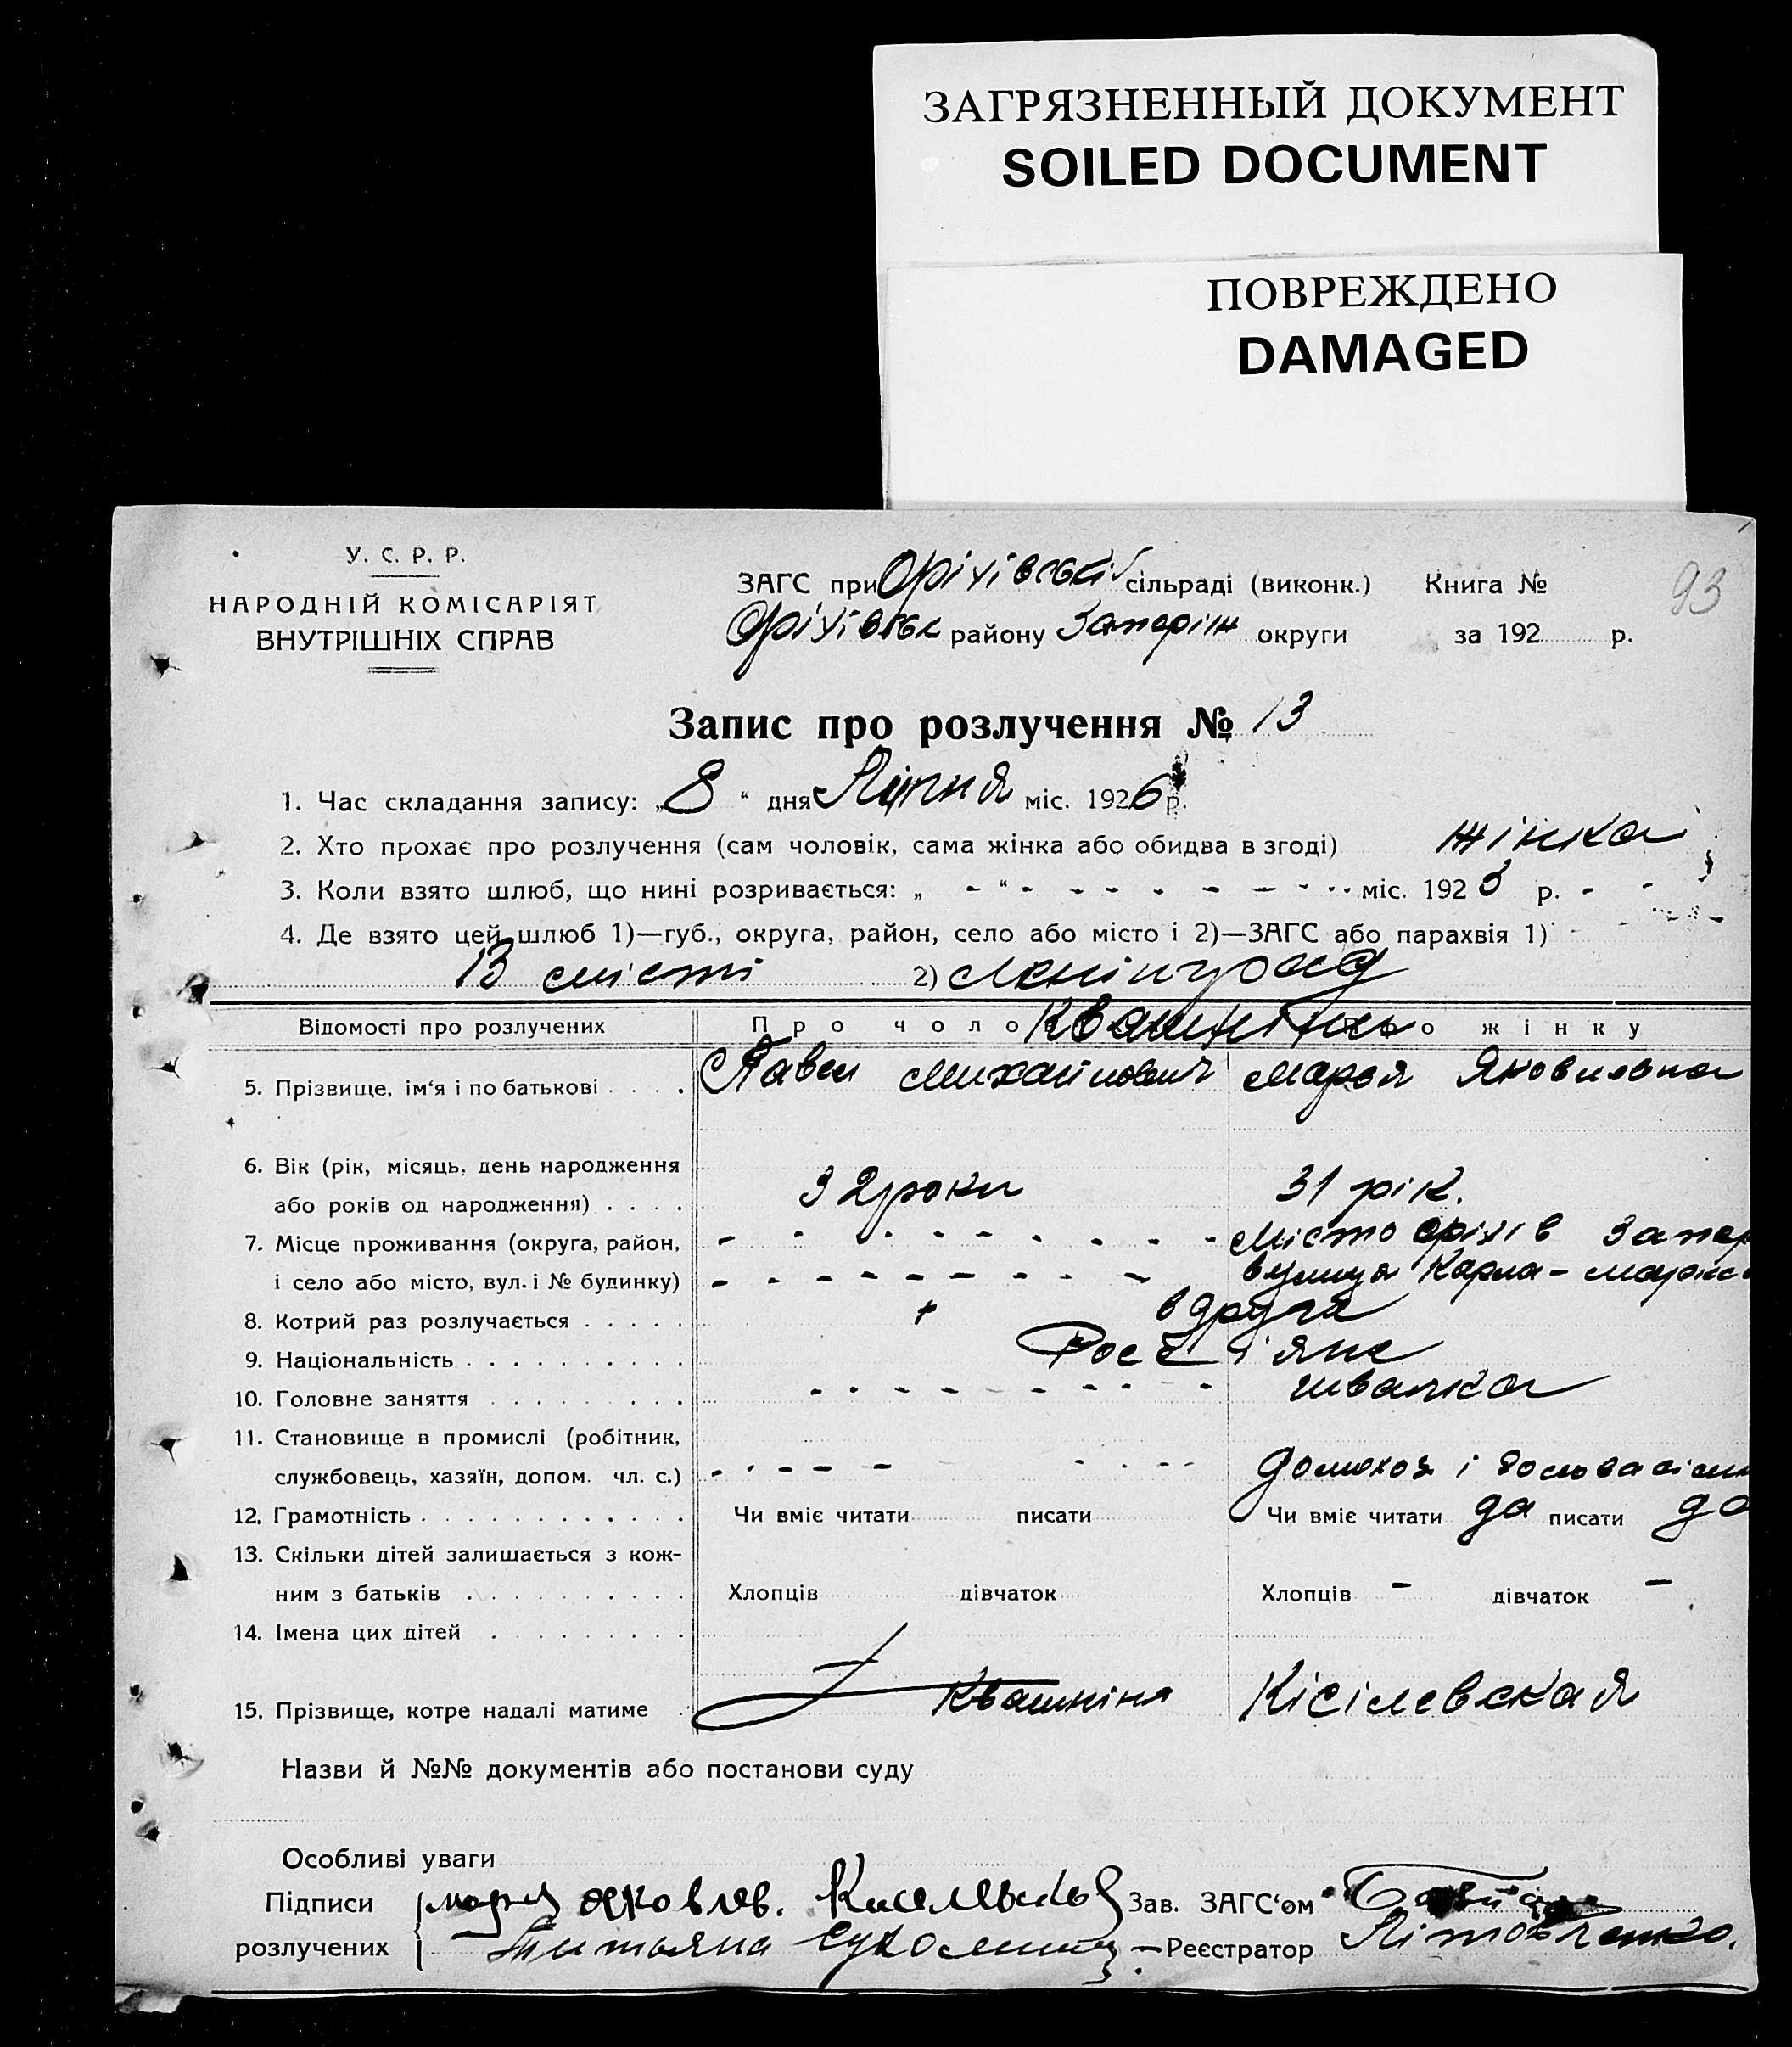 ЗАГРЯЗНЕННЫЙ ДОКУМЕНТ
SOILED DOCUMENT
ПОВРЕЖДЕНО
DAMAGED
93
У. С. Р. Р.
НАРОДНІЙ КОМІСАРІЯТ
ВНУТРІШНІХ СПРАВ
ЗАГС при Оріхівській сільраді (виконк.) Книга №
Оріхівськ району Запоріж округи за 192 р.
Запис про розлучення № 13
1. Час складання запису: „8“ дня Липня міс. 1926 р.
2. Хто прохає про розлучення (сам чоловік, сама жінка або обидва в згоді) жінка
3. Коли взято шлюб, що нині розривається: „ - “ - - - - - - - - міс. 1923 р. - -
4. Де взято цей шлюб 1)—губ., округа, район, село або місто і 2)—ЗАГС або парахвія 1)
В місті 2) Ленінград
Відомості про розлучених Про чоло Про жінку
5. Прізвище, ім‘я і по батькові . . . . Павел Михайлович Марья Яковлевна
6. Вік (рік, місяць, день народження
або років од народження) . . . . 32 роки 31 рік.
7. Місце проживання (округа, район, - - - - - - - - Місто Оріхів Запор
і село або місто, вул. і № будинку) - - - - - - - - вулиця Карла-Маркса
8. Котрий раз розлучається . . . . . вдруге
9. Національність . . . . . . . . . . . Росіяне
10. Головне заняття . . . . . . . . . - - - - - - - - - швачка
11. Становище в промислі (робітник,
службовець, хазяїн, допом. чл. с.) - - - - - - - - і
12. Грамотність . . . . . . . . . . . . Чи вміє читати писати Чи вміє читати да писати да
13. Скільки дітей залишається з кож-
ним з батьків . . . . . . . . . . Хлопців дівчаток Хлопців - дівчаток -
14. Імена цих дітей . . . . . . . . .
15. Прізвище, котре надалі матиме Квашніна Кісілевская
Назви й №№ документів або постанови суду
Особливі уваги
Підписи Мария Яковлев. Зав. ЗАГС‘ом
розлучених Титьяна — Реєстратор Літовченко.